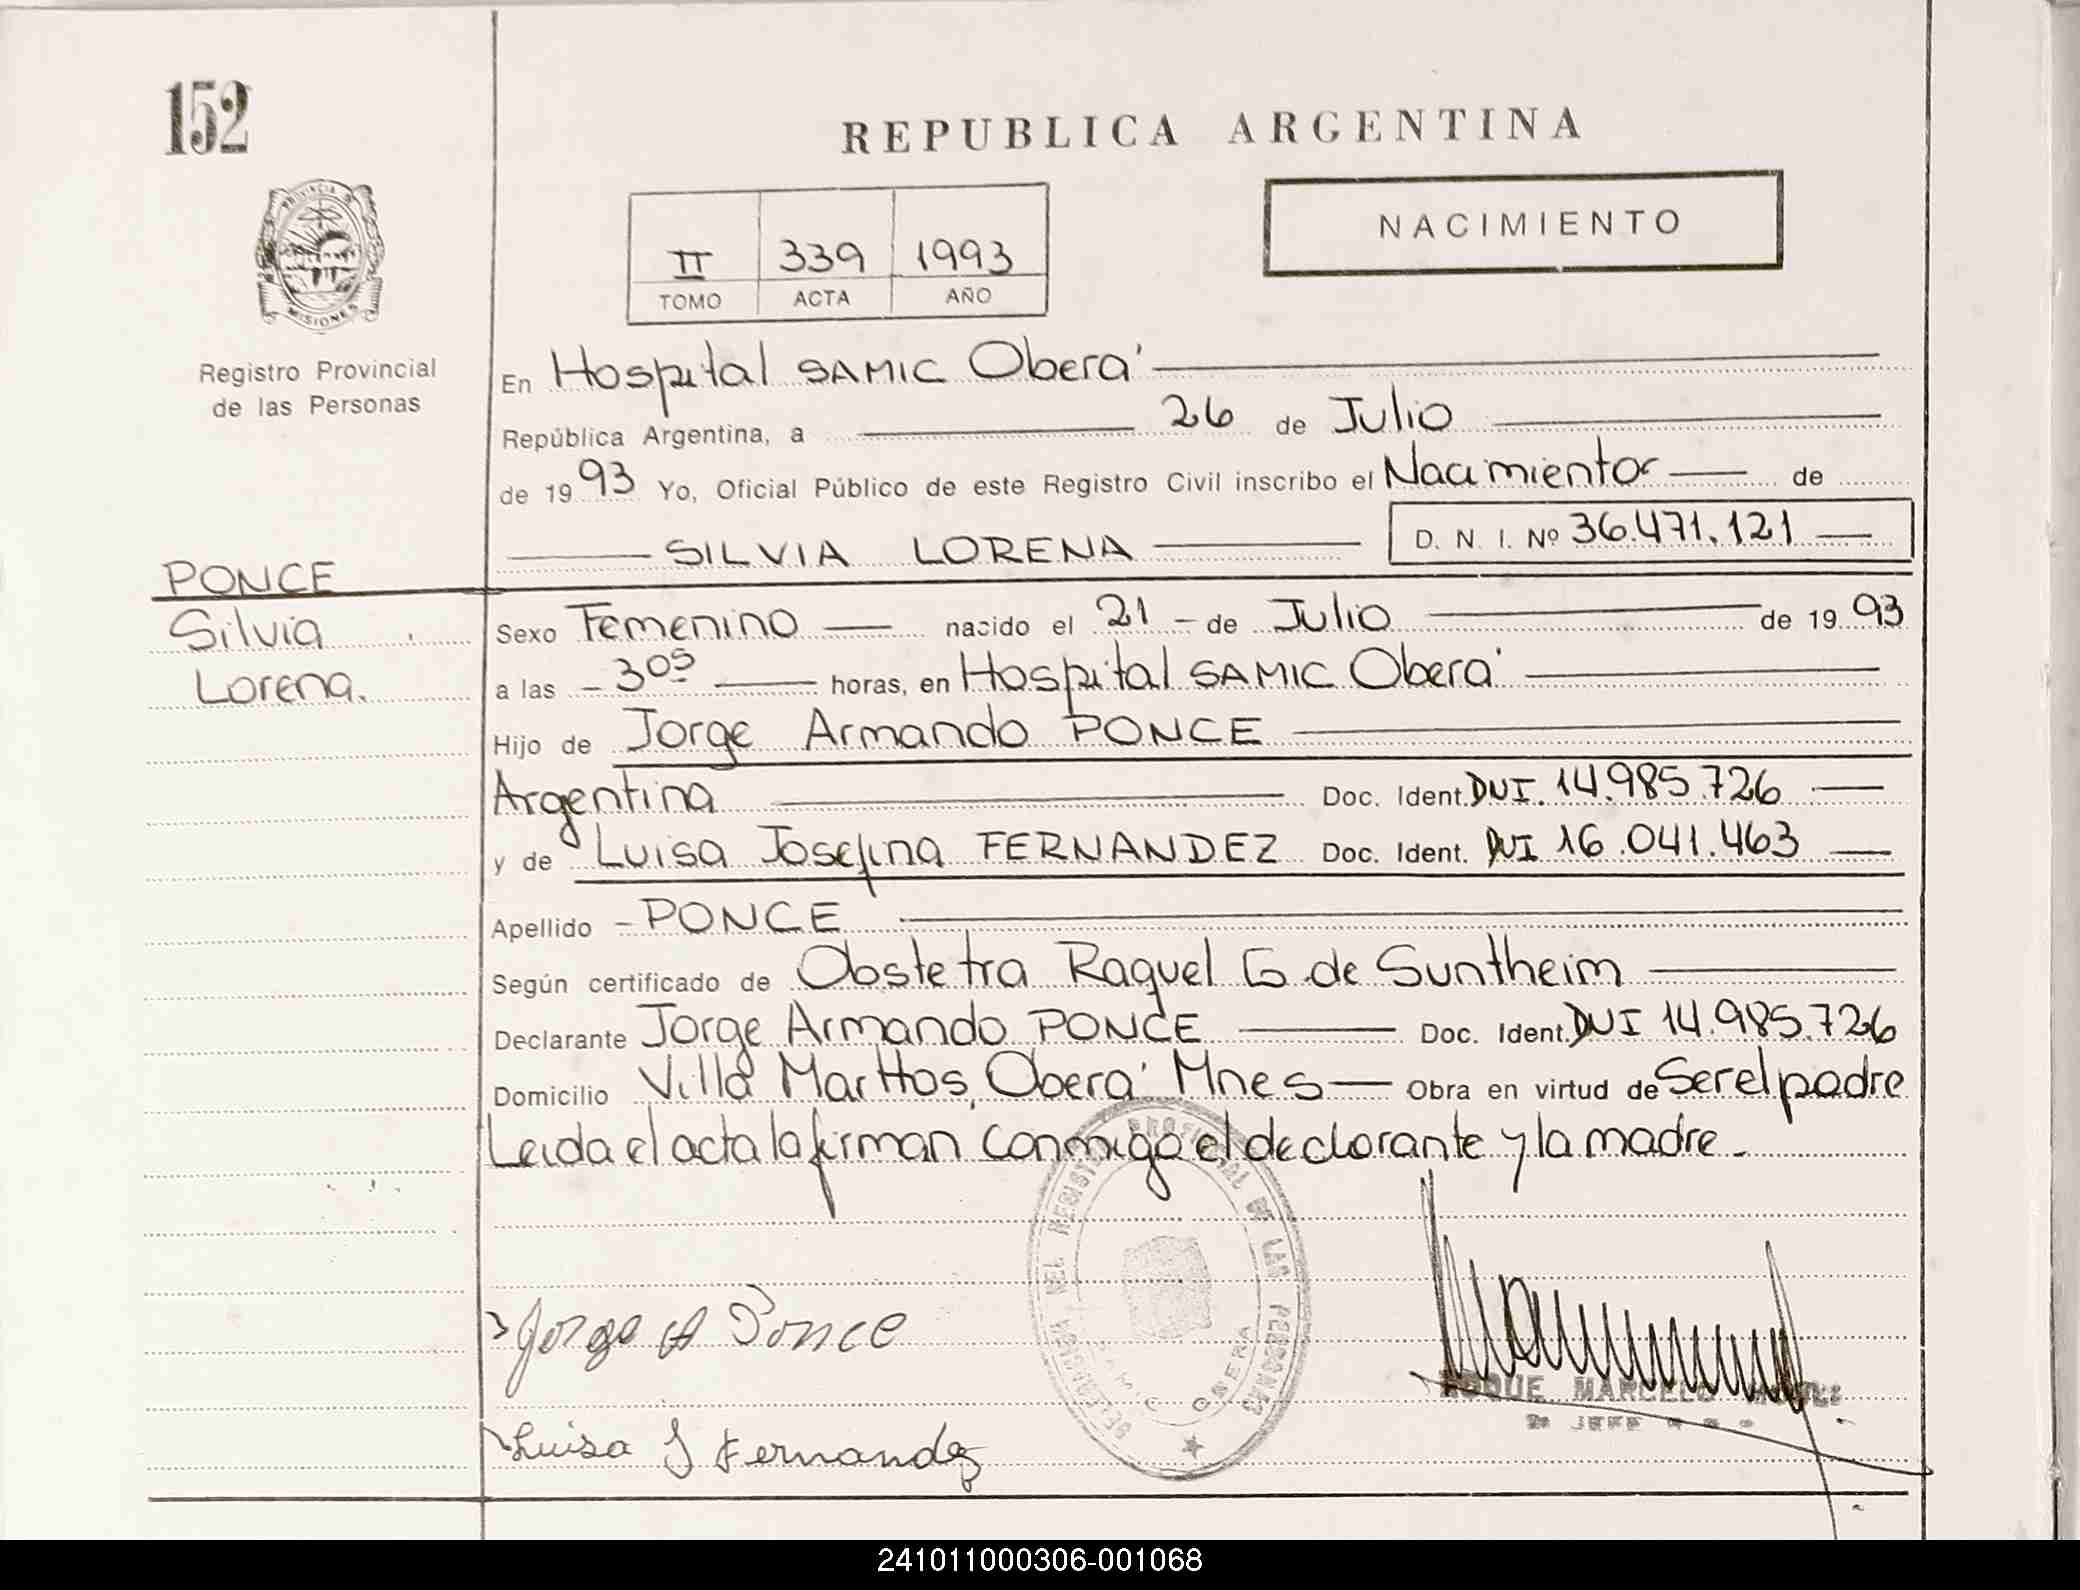 152
REPUBLICA ARGENTINA
NACIMIENTO
II 339 1993
TOMO ACTA AÑO
PROVINCIA DE
MISIONES
Registro Provincial
de las Personas
En Hospital SAMIC Oberá
República Argentina, a 26 de Julio
de 1993 Yo, Oficial Público de este Registro Civil inscribo el Nacimiento de
SILVIA LORENA D. N. I. Nº 36.471.121
PONCE
Silvia
Lorena.
Sexo Femenino nacido el 21 de Julio de 1993
a las 305 horas, en Hospital SAMIC Oberá
Hijo de Jorge Armando PONCE
Argentina Doc. Ident. DNI. 14.985.726
y de Luisa Josefina FERNANDEZ Doc. Ident. DNI 16.041.463
Apellido - PONCE
Según certificado de Obstetra Raquel G de Suntheim
Declarante Jorge Armando PONCE Doc. Ident. DNI 14.985.726
Domicilio Villa Marttos, Oberá Mnes Obra en virtud de Ser el padre
Leida el acta la firman conmigo el declarante y la madre.
DELEGACION DEL REGISTRO PROVINCIAL DE LAS PERSONAS
OBERA
Jorge A Ponce
ROQUE MARCELO
2º JEFE
Luisa J Fernandez
241011000306-001068